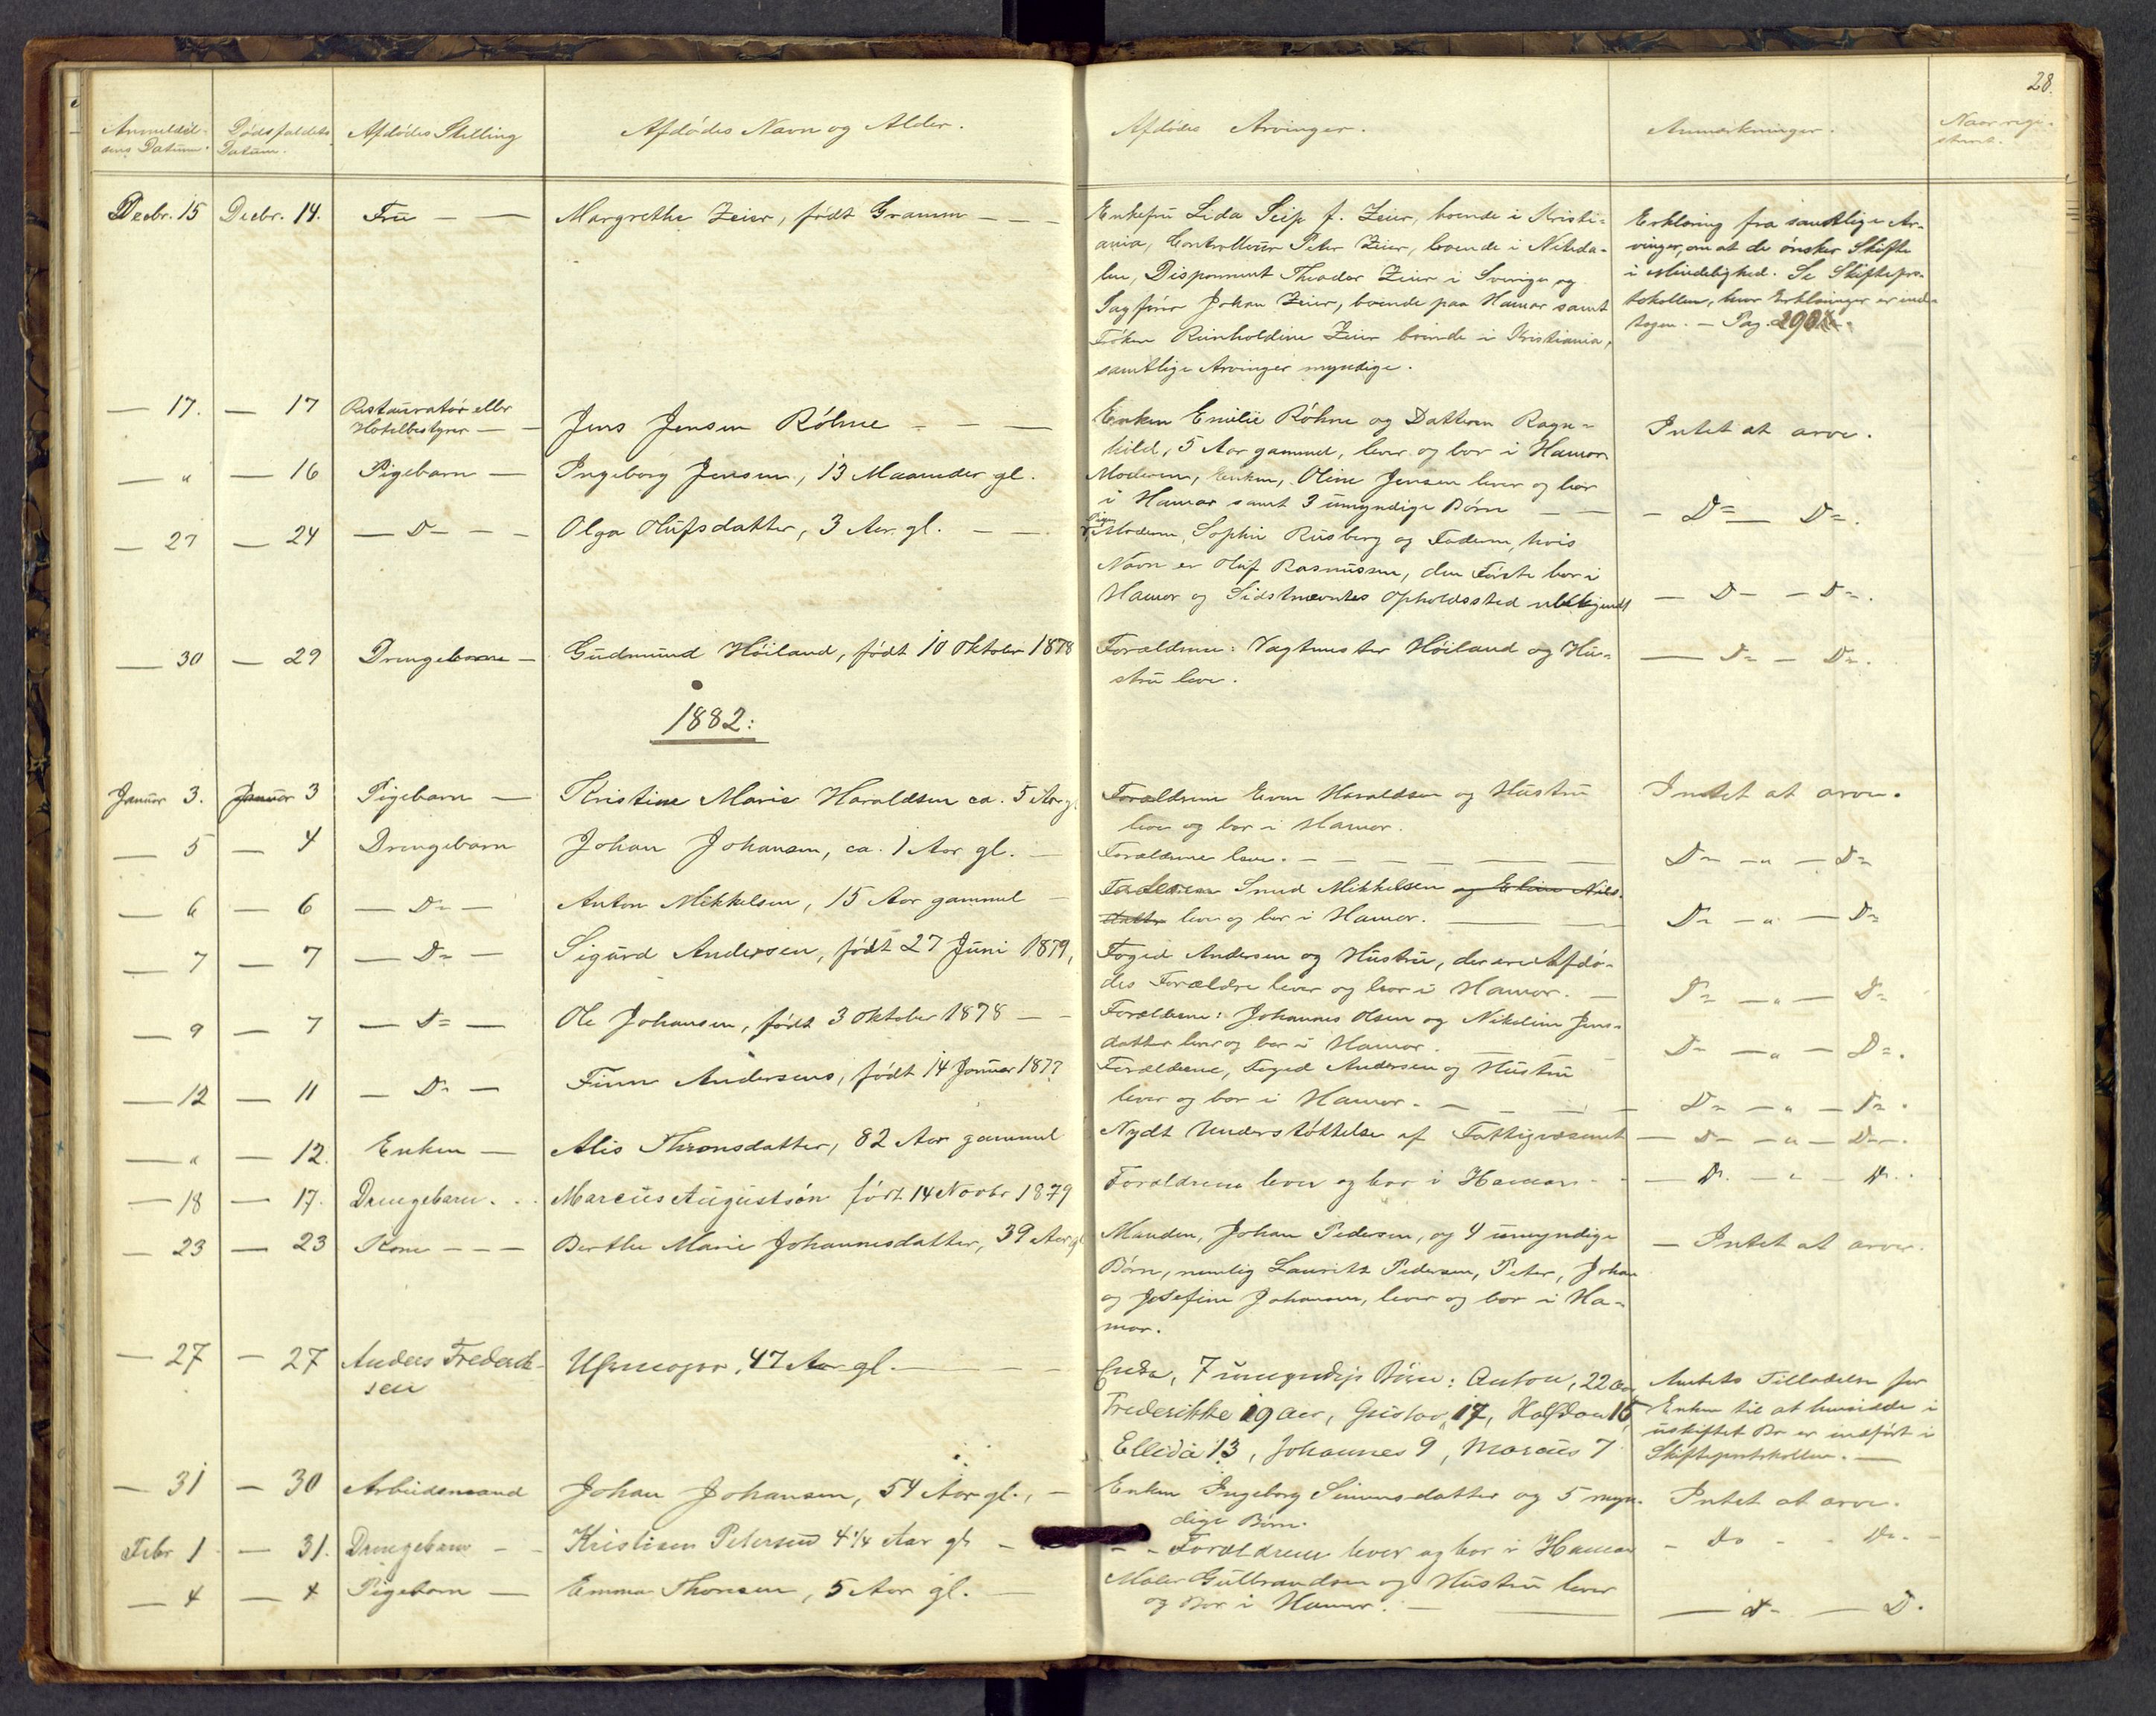 28.
Anmeldel-
sens Datum.
Dødsfaldets
Datum.
Afdødes Stilling
Afdødes Navn og Alder.
Afdødes Arvinger.
Anmærkninger.
Naar regi-
streret.
Decbr. 15 Decbr. 14. Fru — — Margrethe Zeier, født Gramm — — Enkefru Lida Seip f. Zeier, boende i Kristi-
ania, Controlleur Peter Zeier, boende i Nitteda-
len, Disponent Theodor Zeier i Sverige og
Sagfører Johan Zeier, boende paa Hamar samt
Frøken Reinholdine Zeier boende i Kristiania,
samtlige Arvinger myndige.
Erklæring fra samtlige Ar-
vinger, om at de ønsker Skifte
i Mindelighed. Se Skiftepro-
tokollen, hvor Erklæringer er ind-
tagen. — Pag.
— 17. — 17 Restauratør eller
Hotelbestyrer — Jens Jensen Røhne — — — Enken Emilie Røhne og Datteren Ragn-
hild, 5 Aar gammel, lever og bor i Hamar
Intet at arve.
— " — 16 Pigebarn — Ingeborg Jensen, 13 Maaneder gl. Moderen, Enken, Oline Jensen lever og bor
i Hamar samt 3 umyndige Børn — —
— Do — Do.
— 27 — 24 — Do — — Olga Olufsdatter, 3 Aar gl. — — Pigen
Moderen, Sophie Rusberg og Faderen, hvis
Navn er Oluf Rasmussen, den Første bor i
Hamar og Sidstnævntes Opholdssted ubekjendt
— Do — Do.
— 30 — 29 Drengebarn — Gudmund Høiland, født 10 Oktober 1878 Forældrene: Vagtmester Høiland og Hu-
stru lever.
— Do — Do.
1882:
Januar 3. Januar 3 Pigebarn — Kristine Marie Haraldsen ca. 5 Aar gl. Forældrene Even Haraldsen og Hustru
lever og bor i Hamar.
Intet at arve.
— 5 — 4 Drengebarn Johan Johansen, ca. 1 Aar gl. — Forældrene lever. — — — — —
Do — " — Do
— 6 — 6 — Do — Anton Mikkelsen, 15 Aar gammel — Mikkelsen og Eline Niels-
datter lever og bor i Hamar. —
Do — " — Do
— 7 — 7 — Do — Sigurd Andersen, født 27 Juni 1879, Foged Andersen og Hustru, der ere Afdø-
des Forældre lever og bor i Hamar. —
Do — " — Do
— 9 — 7 — Do — Ole Johansen, født 3 Oktober 1878 — — Forældrene: Johannes Olsen og Nikoline Jens-
datter lever og bor i Hamar. —
Do — " — Do.
— 12 — 11 — Do — Finn Andersens, født 14 Januar 1877 Forældrene, Foged Andersen og Hustru
lever og bor i Hamar. — — — —
Do — " — Do.
— " — 12. Enken — Alis Thronsdatter, 82 Aar gammel Nydt Understøttelse af Fattigvæsenet — Do — " — Do.
— 18 — 17. Drengebarn. Marcus Augustsøn født 14 Novbr 1879 Forældrene lever og bor i Hamar — Do. — " — Do.
— 23 — 23 Kone — — — Berthe Marie Johannesdatter, 39 Aar gl Manden, Johan Pedersen, og 4 umyndige
Børn, nemlig Lauritz Pedersen, Peter, Johan
og Josefine Johansen, lever og bor i Ha-
mar.
— Intet at arve.
— 27 — 27 Anders Frederik-
sen
Uhrmager, 47 Aar gl. — — — Enke, 7 umyndige Børn: Anton, 22 aar
Frederikke 19 aar, Gustav, 17, Halfdan 15
Ellida 13, Johannes 9, Marcus 7
Amtets Tilladelse for
Enken til at hensidde i
uskiftet Bo er indført i
Skifteprotokollen. —
— 31 — 30 Arbeidsmand Johan Johansen, 54 Aar gl., — Enken Ingeborg Simensdatter og 5 myn-
dige Børn.
Intet at arve.
Febr 1 — 31. Drengebarn — — Kristian Petersen 4 1/4 Aar gl — — Forældrene lever og bor i Hamar — Do — — Do. —
— 4 — 4 Pigebarn — Emma Thorsen, 5 Aar gl. — Maler Gulbrandsen og Hustru lever
og bor i Hamar. — —
— Do — Do.